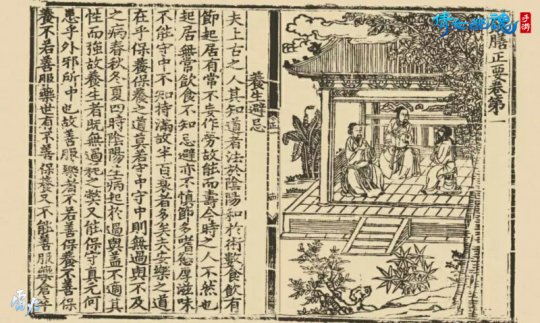 倩女幽魂
手游
膳正要卷第一
養生避忌
夫上古之人其知道者法於陰陽和於術數食飲有
節起居有常不妄作勞故能而壽今時之人不然也
起居無常飲食不知忌避亦不慎節多嗜慾厚滋味
不能守中不知持滿故半百衰者多矣夫安樂之道
在乎保養保養之道莫若守中守中則無過與不及
之病春秋冬夏四時陰陽生病起於過與蓋不適其
性而強故養生者既無過耗之弊又能保守真元何
患乎外邪所中也故善服藥者不若善保養不善保
養不若善服藥世有不善保養又不能善服藥倉卒
雷火